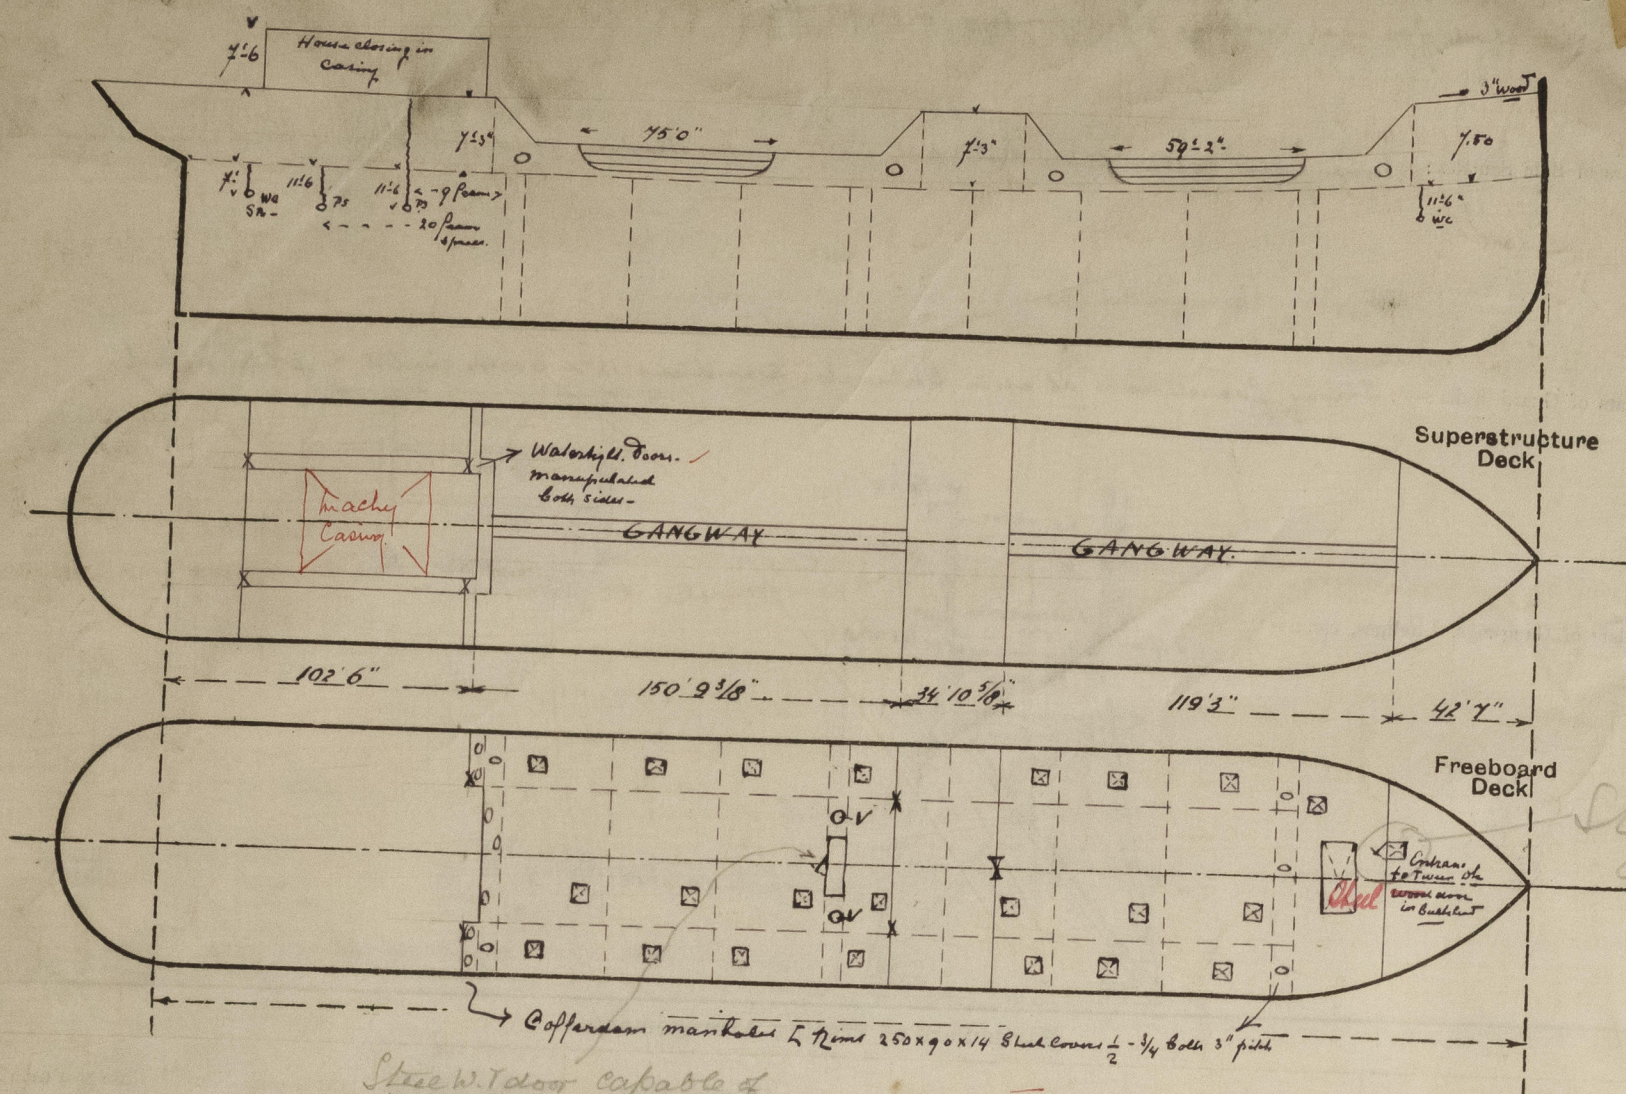 7'-6
House closing in
Casing
3" wood
7'-3"
75'0"
7'-3"
59'-2"
7.50
7'
11'-6
11'-6
9
11'-6"
WC
PS
PS
WC
20
spaces.
Superstructure
Deck
Watertight Doors.
manipulated
both sides-
Machy
Casing
GANGWAY
GANGWAY.
102'6"
150'9 3/8"
34'10 5/8"
119'3"
42'7"
Freeboard
Deck
Entrance
to Tween Dk
Steel wood door
in Bulkhead
Cofferdam manholes
250x90x14 Steel covers 1/2 - 3/4 bolts 3" pitch
Steel W.T door capable of